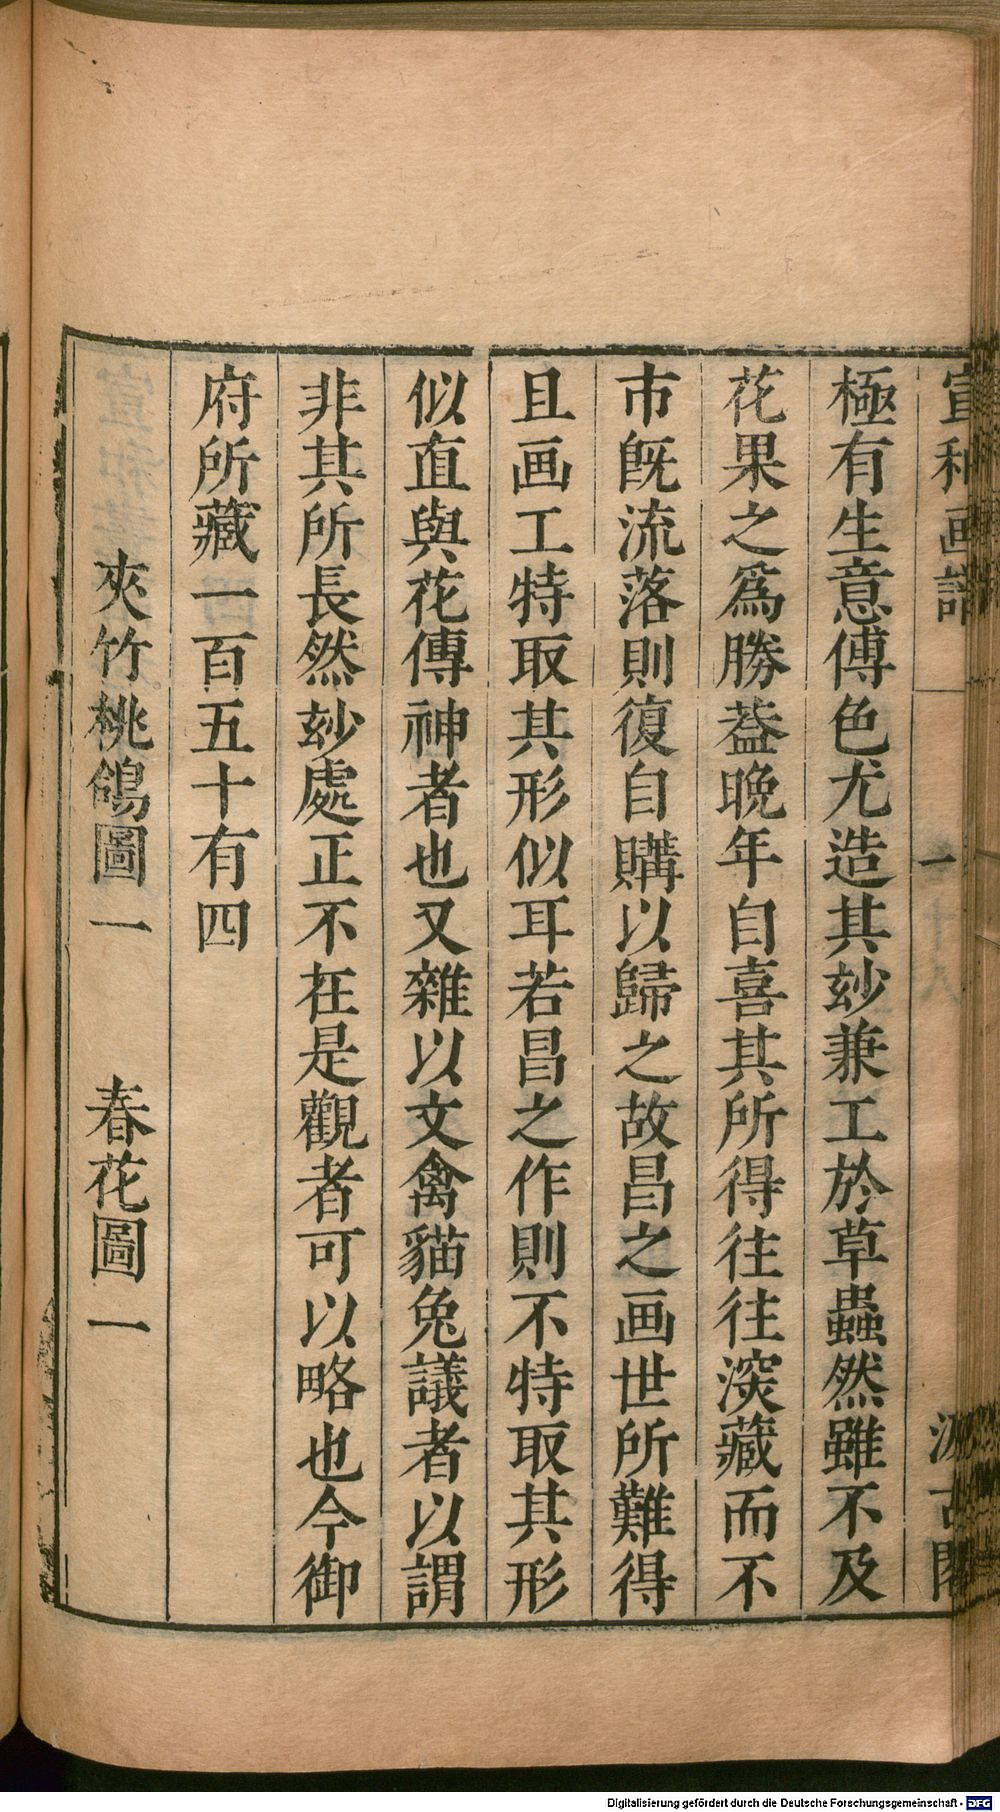 宣和画譜 一 汲古閣
極有生意傅色尤造其玅兼工於草蟲然雖不及
花果之爲勝葢晩年自喜其所得往往深藏而不
市旣流落則復自購以歸之故昌之画世所難得
且画工特取其形似耳若昌之作則不特取其形
似直與花傳神者也又雜以文禽貓兔議者以謂
非其所長然玅處正不在是觀者可以略也今御
府所藏一百五十有四
夾竹桃鴿圖一 春花圖一
Digitalisierung gefördert durch die Deutsche Forschungsgemeinschaft - DFG